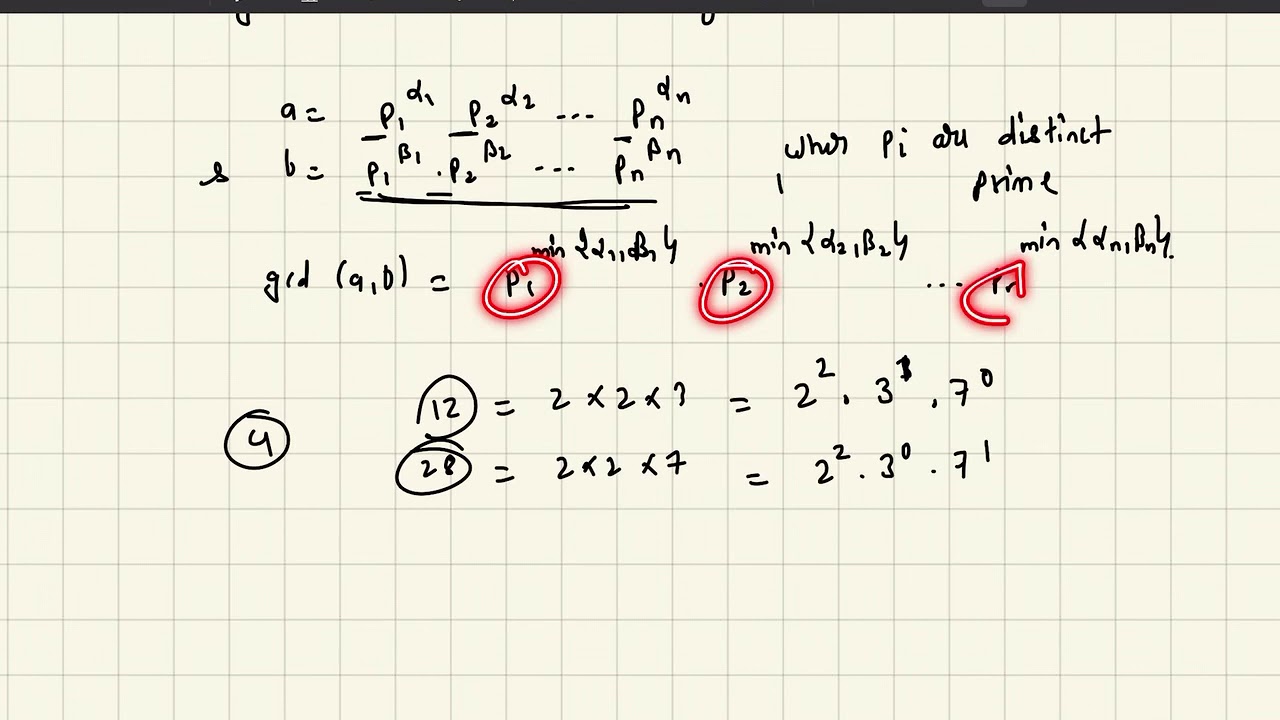 a = p₁^α₁ p₂^α₂ ... pₙ^αₙ
b = p₁^β₁ . p₂^β₂ ... pₙ^βₙ
where pi are distinct
prime
gcd (a,b) = p₁^min{α₁,β₁} . p₂^min{α₂,β₂} ... ^min{αₙ,βₙ}
12 = 2 × 2 × 3 = 2² . 3¹ . 7⁰
4
28 = 2 × 2 × 7 = 2² . 3⁰ . 7¹